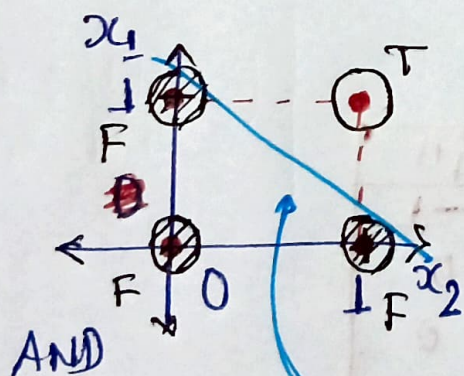 x₁
T
1
F
0
F 0 1 F x₂
AND